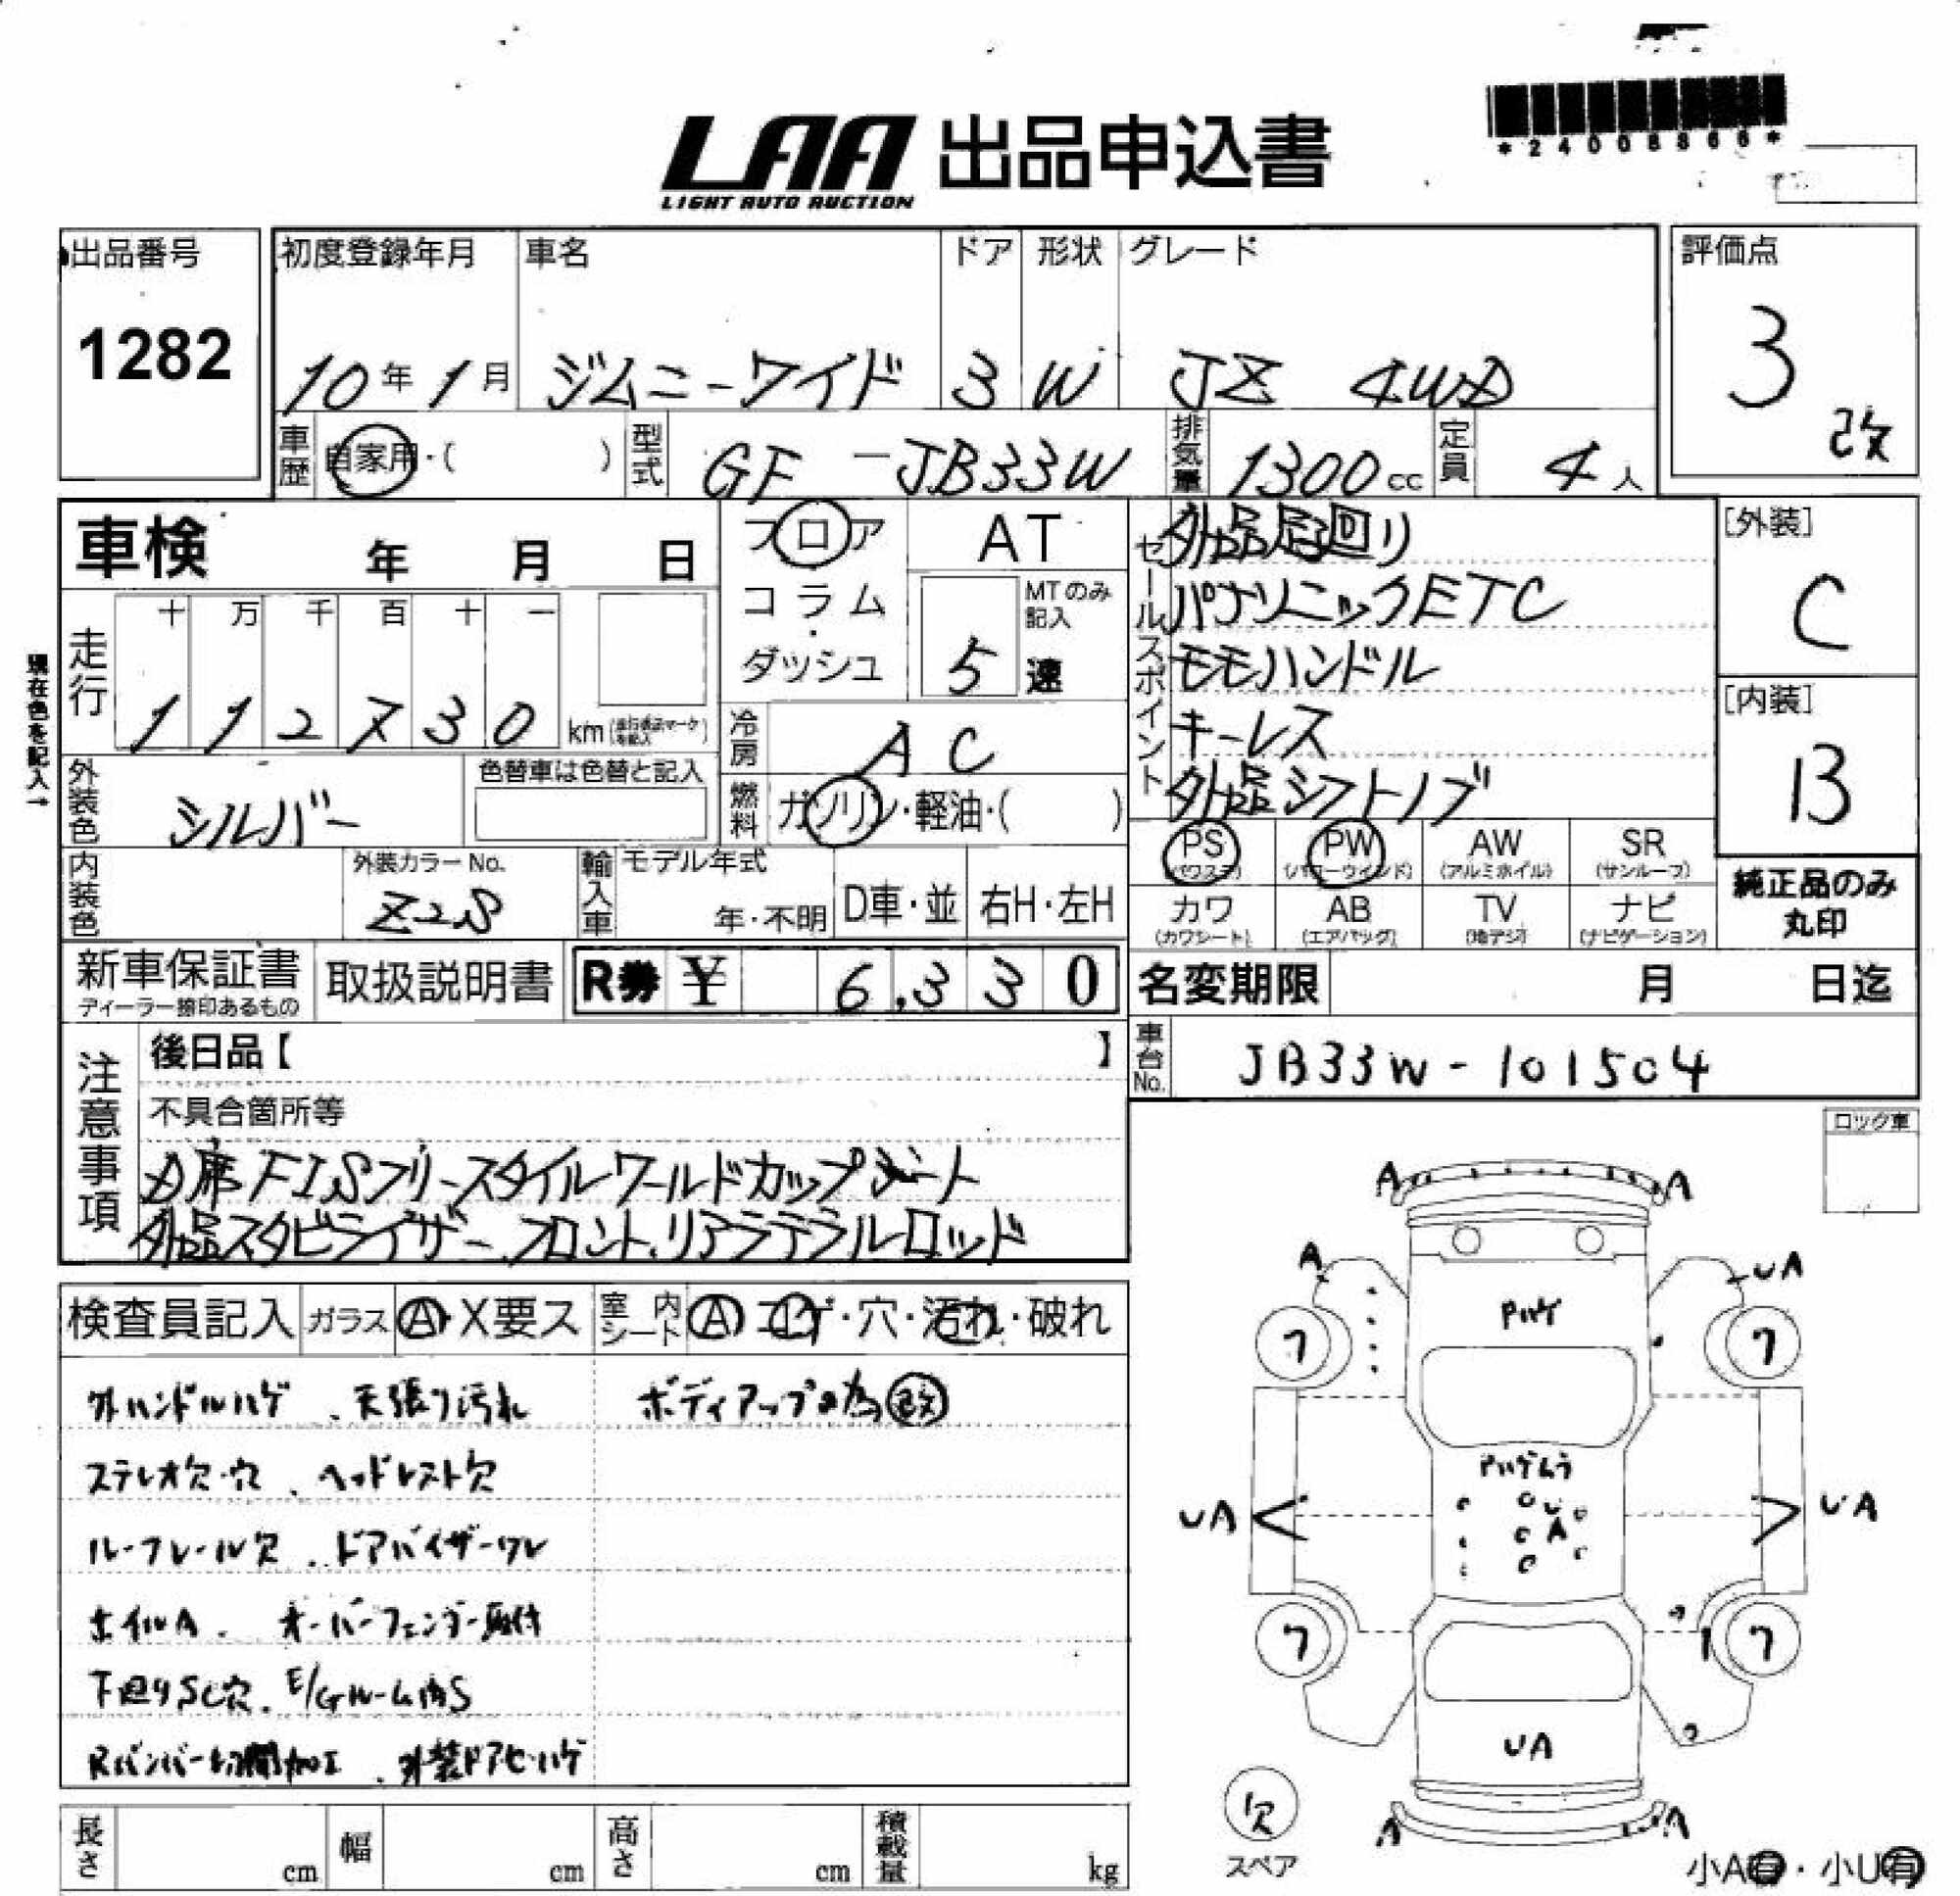 LAA 出品申込書
LIGHT AUTO AUCTION
*24008866*
出品番号
1282
初度登録年月 車名 ドア 形状 グレード
10年1月 ジムニーワイド 3 W JZ 4WD
評価点
3
改
車歴 自家用・( ) 型式 GF-JB33W 排気量 1300cc 定員 4人
車検 年 月 日
フロア
コラム・
ダッシュ
AT
MTのみ記入
5 速
セールスポイント
外品足回り
パナソニックETC
モモハンドル
キーレス
外品シフトノブ
[外装]
C
[内装]
B
現在色を記入→
走行 十 万 千 百 十 一
1 1 2 7 3 0 km
冷房 AC
外装色 シルバー
色替車は色替と記入
燃料 ガソリン・軽油・( )
PS (パワステ) PW (パワーウインド) AW (アルミホイル) SR (サンルーフ)
カワ (カワシート) AB (エアバッグ) TV (地デジ) ナビ (ナビゲーション)
純正品のみ
丸印
内装色 外装カラーNo.
Z2S
輸入車 モデル年式
年・不明 D車・並 右H・左H
新車保証書 取扱説明書 R券 ¥ 6,330
ディーラー捺印あるもの
名変期限 月 日迄
車台No. JB33W-101504
注意事項
後日品【 】
不具合箇所等
D席FISフリースタイルワールドカップシート
外品スタビライザー、フロント、リアラテラルロッド
ロック車
検査員記入 ガラス A・X要ス 室内シート A コゲ・穴・汚れ・破れ
外ハンドルハゲ、天張り汚れ ボディアップの為改
ステレオ欠・穴、ヘッドレスト欠
ルーフレール欠、ドアバイザーワレ
ホイルA、オーバーフェンダー取付
下廻りSC穴、E/Gルーム内S
Rバンパー切開加工、外装ドアモールハゲ
A A
A UA
Pハゲ
7 7
Pハゲムラ
UA UA
A
7 7
UA
A A
欠
スペア
小A有・小U有
長さ cm 幅 cm 高さ cm 積載量 kg